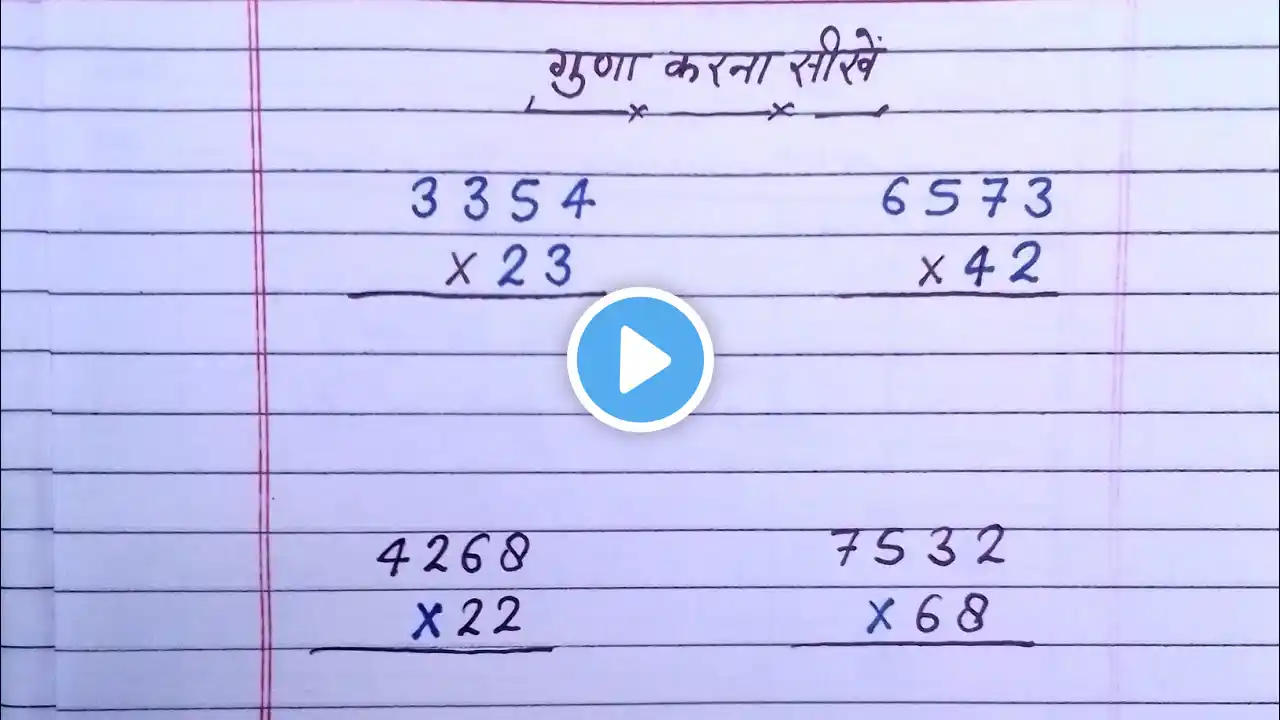 गुणा करना सीखें
3354
×23
6573
×42
4268
×22
7532
×68